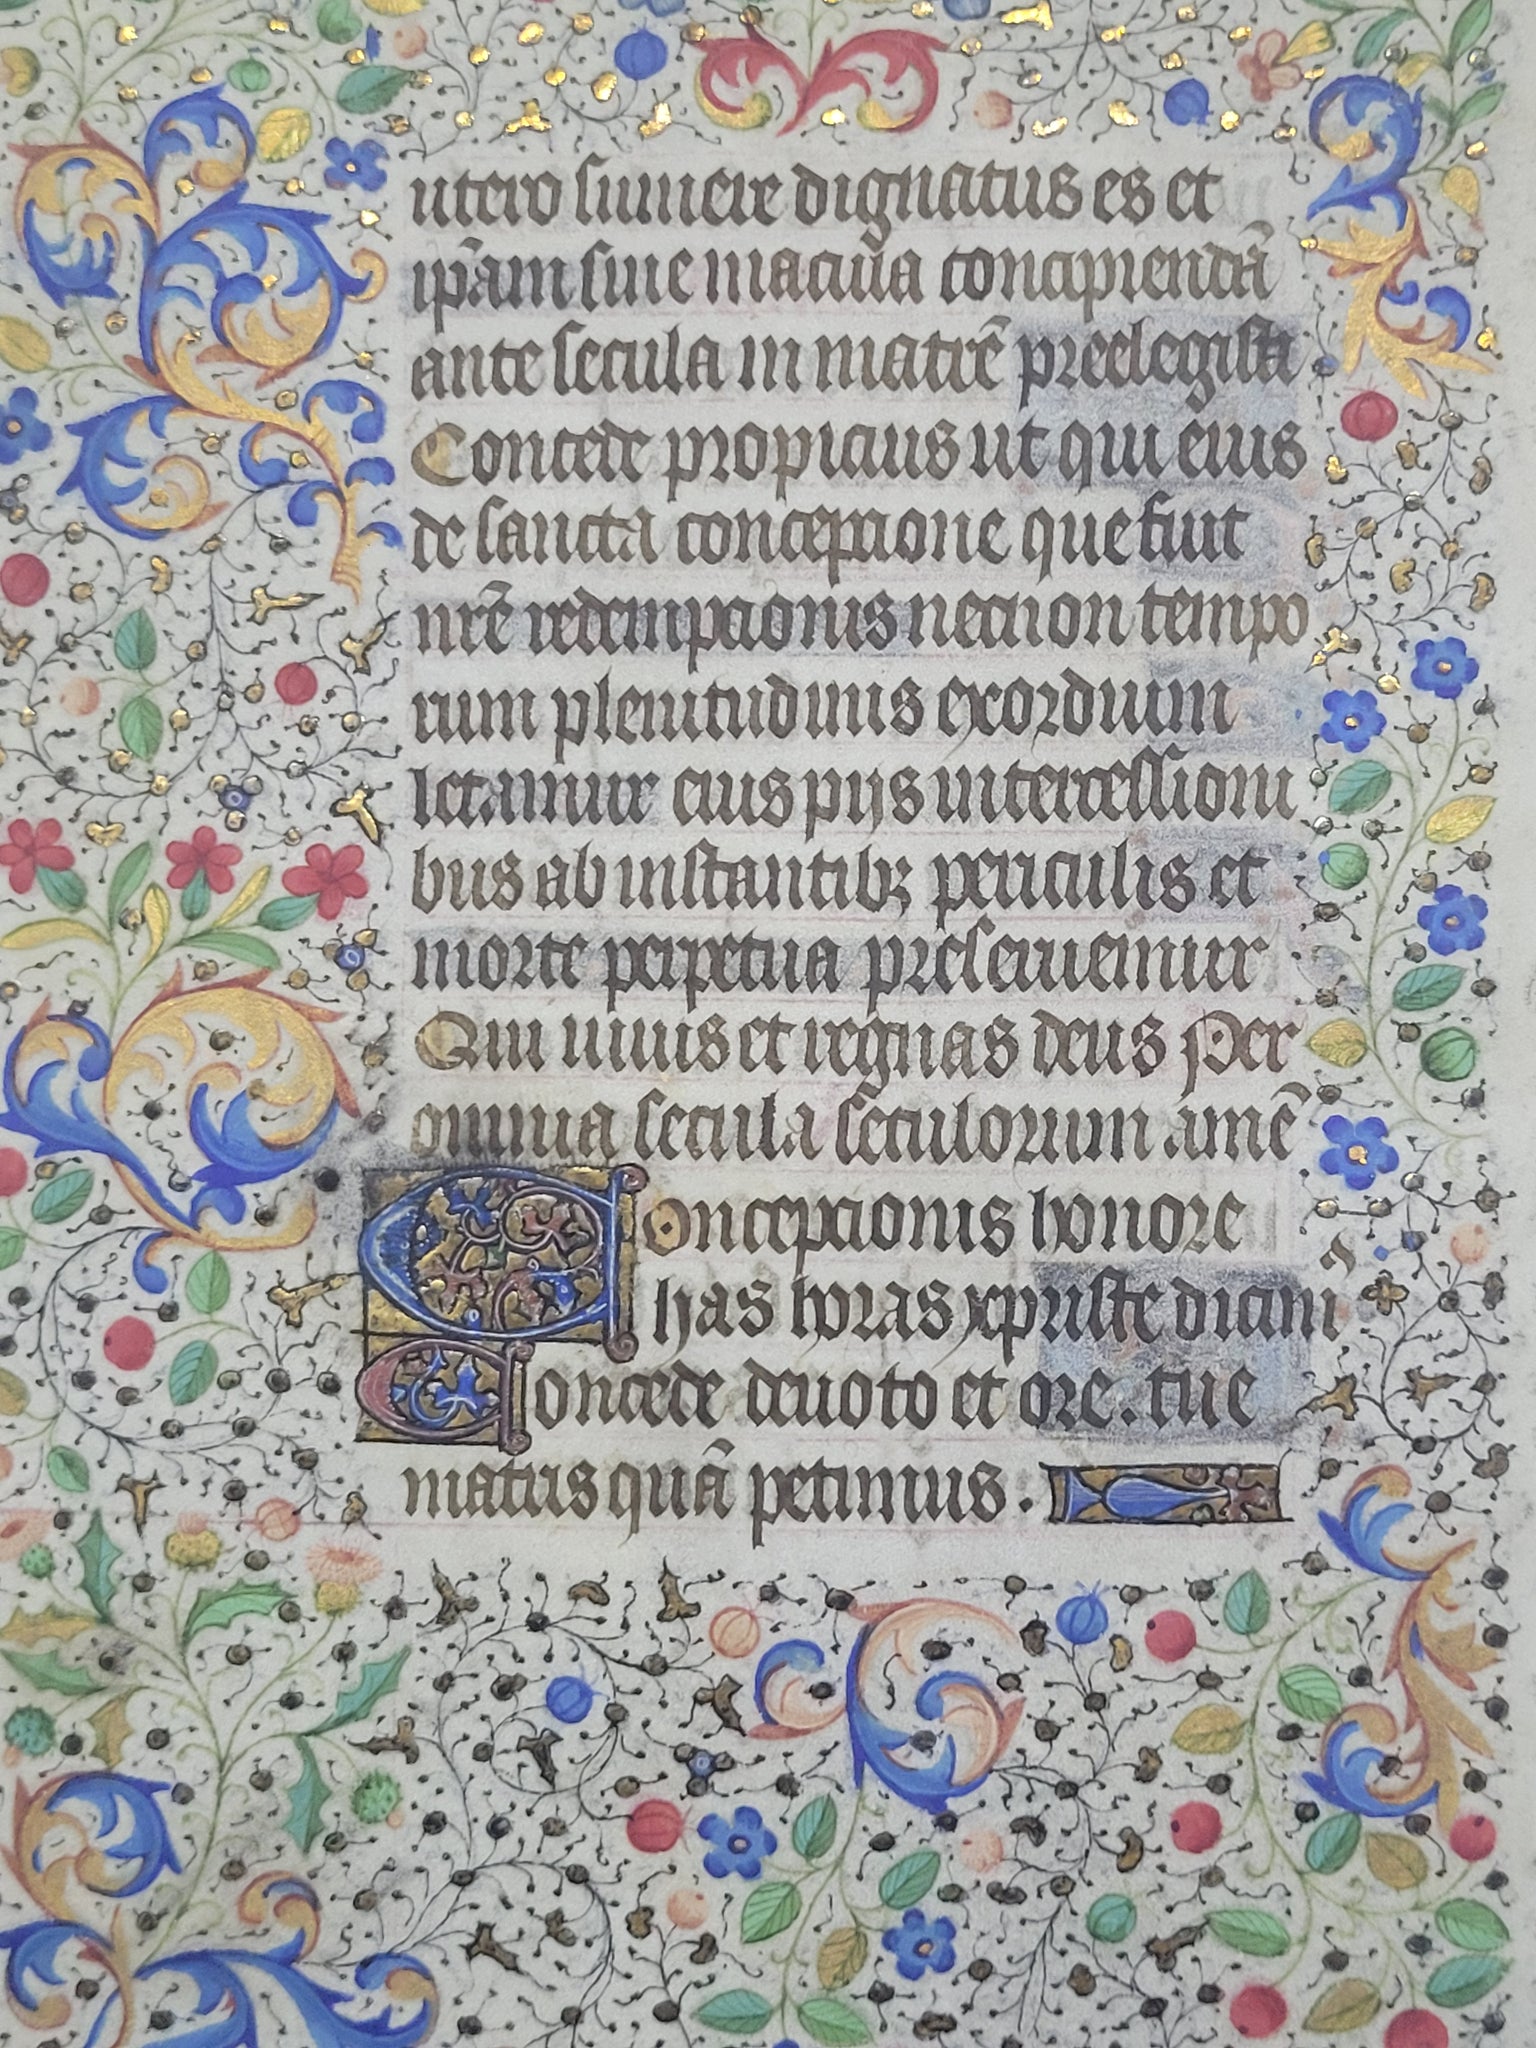 utero sumere dignatus es et
ip̄am sine macula concipiendā
ante secula in matrē preelegisti
Concede propicius ut qui eius
de sancta conceptione que fuit
nr̄e redemptionis necnon tempo
rum plenitudinis exordium
letamur eius pijs intercessioni
bus ab instantibꝫ periculis et
morte perpetua preseruemur
Qui uiuis et regnas deus Per
omnia secula seculorum. amē
Conceptionis honore
has horas xpriste dicim⁹
Concede deuoto et ore. tue
matris quā petimus.